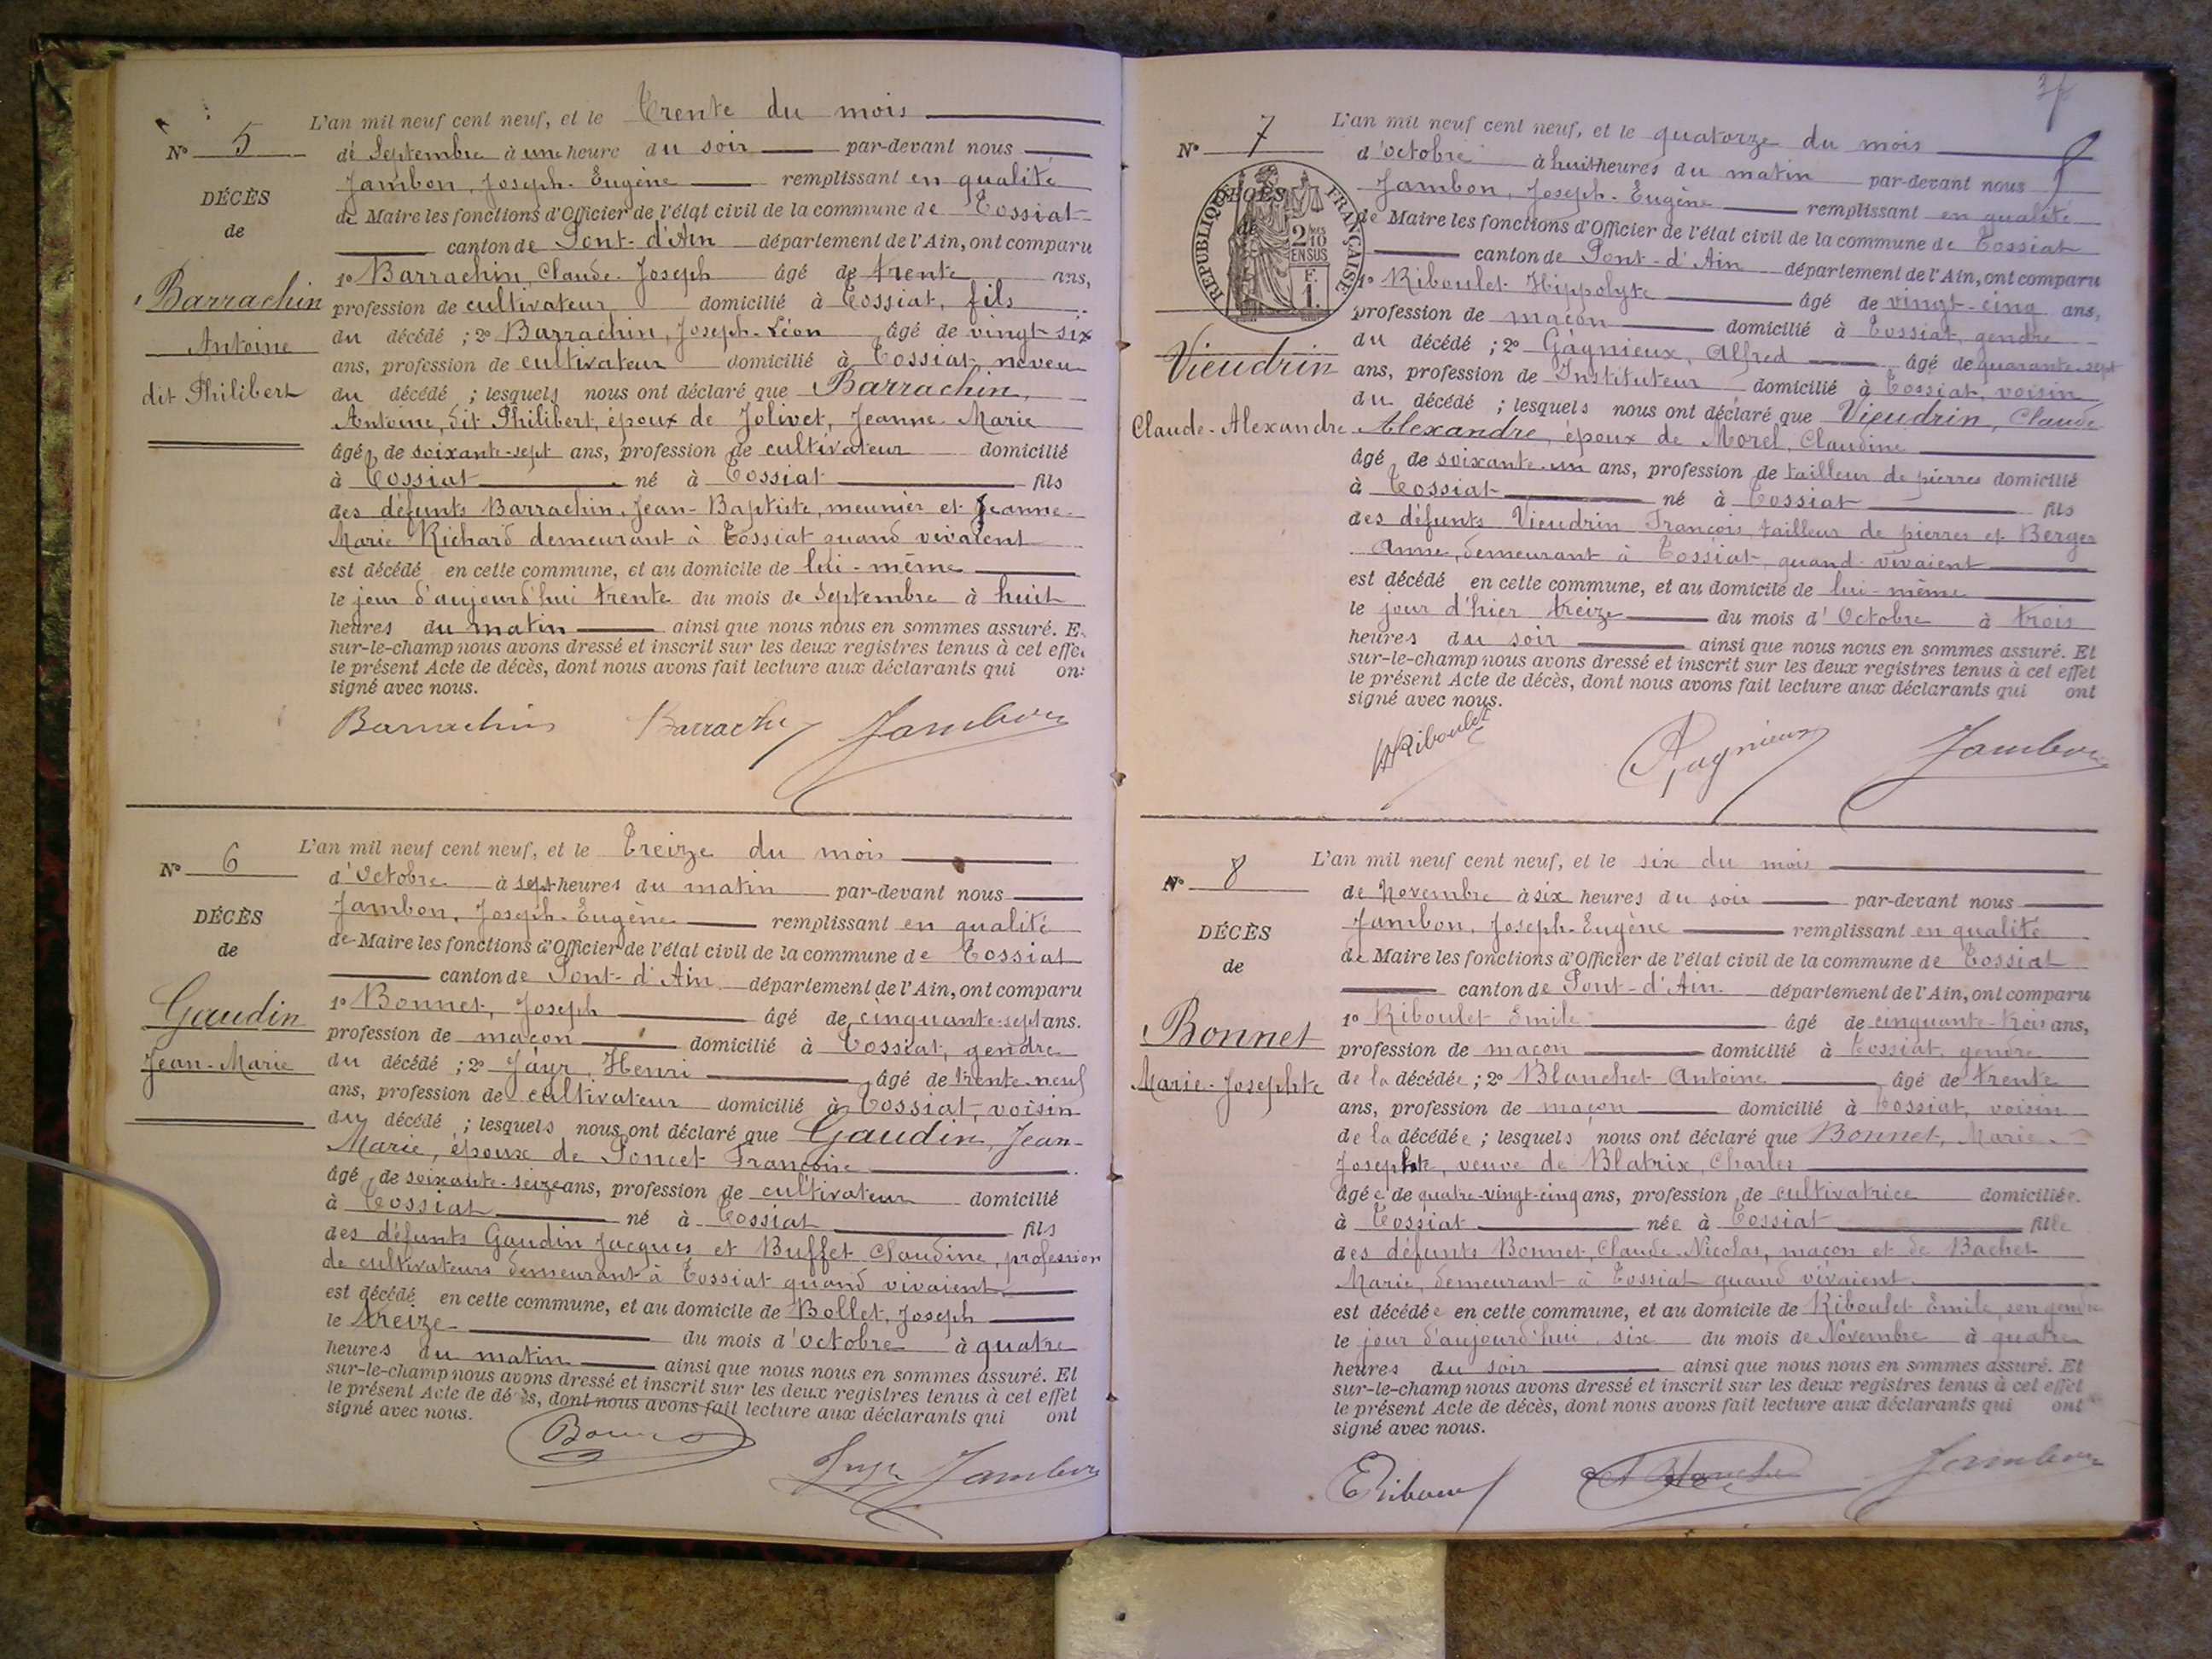 N° 5
DÉCÈS
de
Barrachin
Antoine
dit Philibert
L'an mil neuf cent neuf, et le Trente du mois
de Septembre à une heure du soir par-devant nous
Jambon, Joseph-Eugène remplissant en qualité
de Maire les fonctions d'Officier de l'état civil de la commune de Tossiat
canton de Pont-d'Ain département de l'Ain, ont comparu
1° Barrachin, Claude-Joseph âgé de trente ans,
profession de cultivateur domicilié à Tossiat, fils
du décédé ; 2° Barrachin, Joseph-Léon âgé de vingt-six
ans, profession de cultivateur domicilié à Tossiat, neveu
du décédé ; lesquels nous ont déclaré que Barrachin,
Antoine, dit Philibert, époux de Jolivet, Jeanne-Marie
âgé de soixante-sept ans, profession de cultivateur domicilié
à Tossiat né à Tossiat fils
des défunts Barrachin, Jean-Baptiste, meunier et Jeanne-
Marie Richard demeurant à Tossiat quand vivaient
est décédé en cette commune, et au domicile de lui-même
le jour d'aujourd'hui trente du mois de Septembre à huit
heures du matin ainsi que nous nous en sommes assuré. E
sur-le-champ nous avons dressé et inscrit sur les deux registres tenus à cet effe
le présent Acte de décès, dont nous avons fait lecture aux déclarants qui on
signé avec nous.
Barrachin Barrachin Jambon
N° 6
DÉCÈS
de
Gaudin
Jean-Marie
L'an mil neuf cent neuf, et le Treize du mois
d'Octobre à sept heures du matin par-devant nous
Jambon, Joseph-Eugène remplissant en qualité
de Maire les fonctions d'Officier de l'état civil de la commune de Tossiat
canton de Pont-d'Ain département de l'Ain, ont comparu
1° Bonnet, Joseph âgé de cinquante-sept ans.
profession de maçon domicilié à Tossiat, gendre
du décédé ; 2° Jayr, Henri âgé de trente-neuf
ans, profession de cultivateur domicilié à Tossiat, voisin
du décédé ; lesquels nous ont déclaré que Gaudin, Jean-
Marie, époux de Poncet Françoise
âgé de soixante-seize ans, profession de cultivateur domicilié
à Tossiat né à Tossiat fils
des défunts Gaudin Jacques et Buffet Claudine, profession
de cultivateurs demeurant à Tossiat quand vivaient
est décédé en cette commune, et au domicile de Bollet, Joseph
le treize du mois d'octobre à quatre
heures du matin ainsi que nous nous en sommes assuré. Et
sur-le-champ nous avons dressé et inscrit sur les deux registres tenus à cet effet
le présent Acte de décès, dont nous avons fait lecture aux déclarants qui ont
signé avec nous.
Bonnet Jayr Jambon
N° 7
DÉCÈS
de
RÉPUBLIQUE FRANÇAISE
2/10 EN SUS
F. 1.
Vieudrin
Claude-Alexandre
L'an mil neuf cent neuf, et le quatorze du mois
d'octobre à huit heures du matin par-devant nous
Jambon, Joseph-Eugène remplissant en qualité
de Maire les fonctions d'Officier de l'état civil de la commune de Tossiat
canton de Pont-d'Ain département de l'Ain, ont comparu
1° Riboulet Hippolyte âgé de vingt-cinq ans,
profession de maçon domicilié à Tossiat, gendre
du décédé ; 2° Gagnieux, Alfred âgé de quarante-sept
ans, profession de Instituteur domicilié à Tossiat, voisin
du décédé ; lesquels nous ont déclaré que Vieudrin, Claude
Alexandre, époux de Morel, Claudine
âgé de soixante-un ans, profession de tailleur de pierres domicilié
à Tossiat né à Tossiat fils
des défunts Vieudrin François, tailleur de pierres et Berger
Anne, demeurant à Tossiat, quand vivaient
est décédé en cette commune, et au domicile de lui-même
le jour d'hier treize du mois d'Octobre à trois
heures du soir ainsi que nous nous en sommes assuré. Et
sur-le-champ nous avons dressé et inscrit sur les deux registres tenus à cet effet
le présent Acte de décès, dont nous avons fait lecture aux déclarants qui ont
signé avec nous.
HRiboulet Gagnieux Jambon
N° 8
DÉCÈS
de
Bonnet
Marie-Josephte
L'an mil neuf cent neuf, et le six du mois
de Novembre à six heures du soir par-devant nous
Jambon, Joseph-Eugène remplissant en qualité
de Maire les fonctions d'Officier de l'état civil de la commune de Tossiat
canton de Pont-d'Ain département de l'Ain, ont comparu
1° Riboulet Emile âgé de cinquante-trois ans,
profession de maçon domicilié à Tossiat, gendre
de la décédée ; 2° Blanchet Antoine âgé de trente
ans, profession de maçon domicilié à Tossiat, voisin
de la décédée ; lesquels nous ont déclaré que Bonnet, Marie-
Josephte, veuve de Blatrix, Charles
âgée de quatre-vingt-cinq ans, profession de cultivatrice domiciliée
à Tossiat née à Tossiat fille
des défunts Bonnet, Claude-Nicolas, maçon et de Bachet
Marie, demeurant à Tossiat quand vivaient
est décédée en cette commune, et au domicile de Riboulet Emile, son gendre
le jour d'aujourd'hui, six du mois de Novembre à quatre
heures du soir ainsi que nous nous en sommes assuré. Et
sur-le-champ nous avons dressé et inscrit sur les deux registres tenus à cet effet
le présent Acte de décès, dont nous avons fait lecture aux déclarants qui ont
signé avec nous.
Jambon